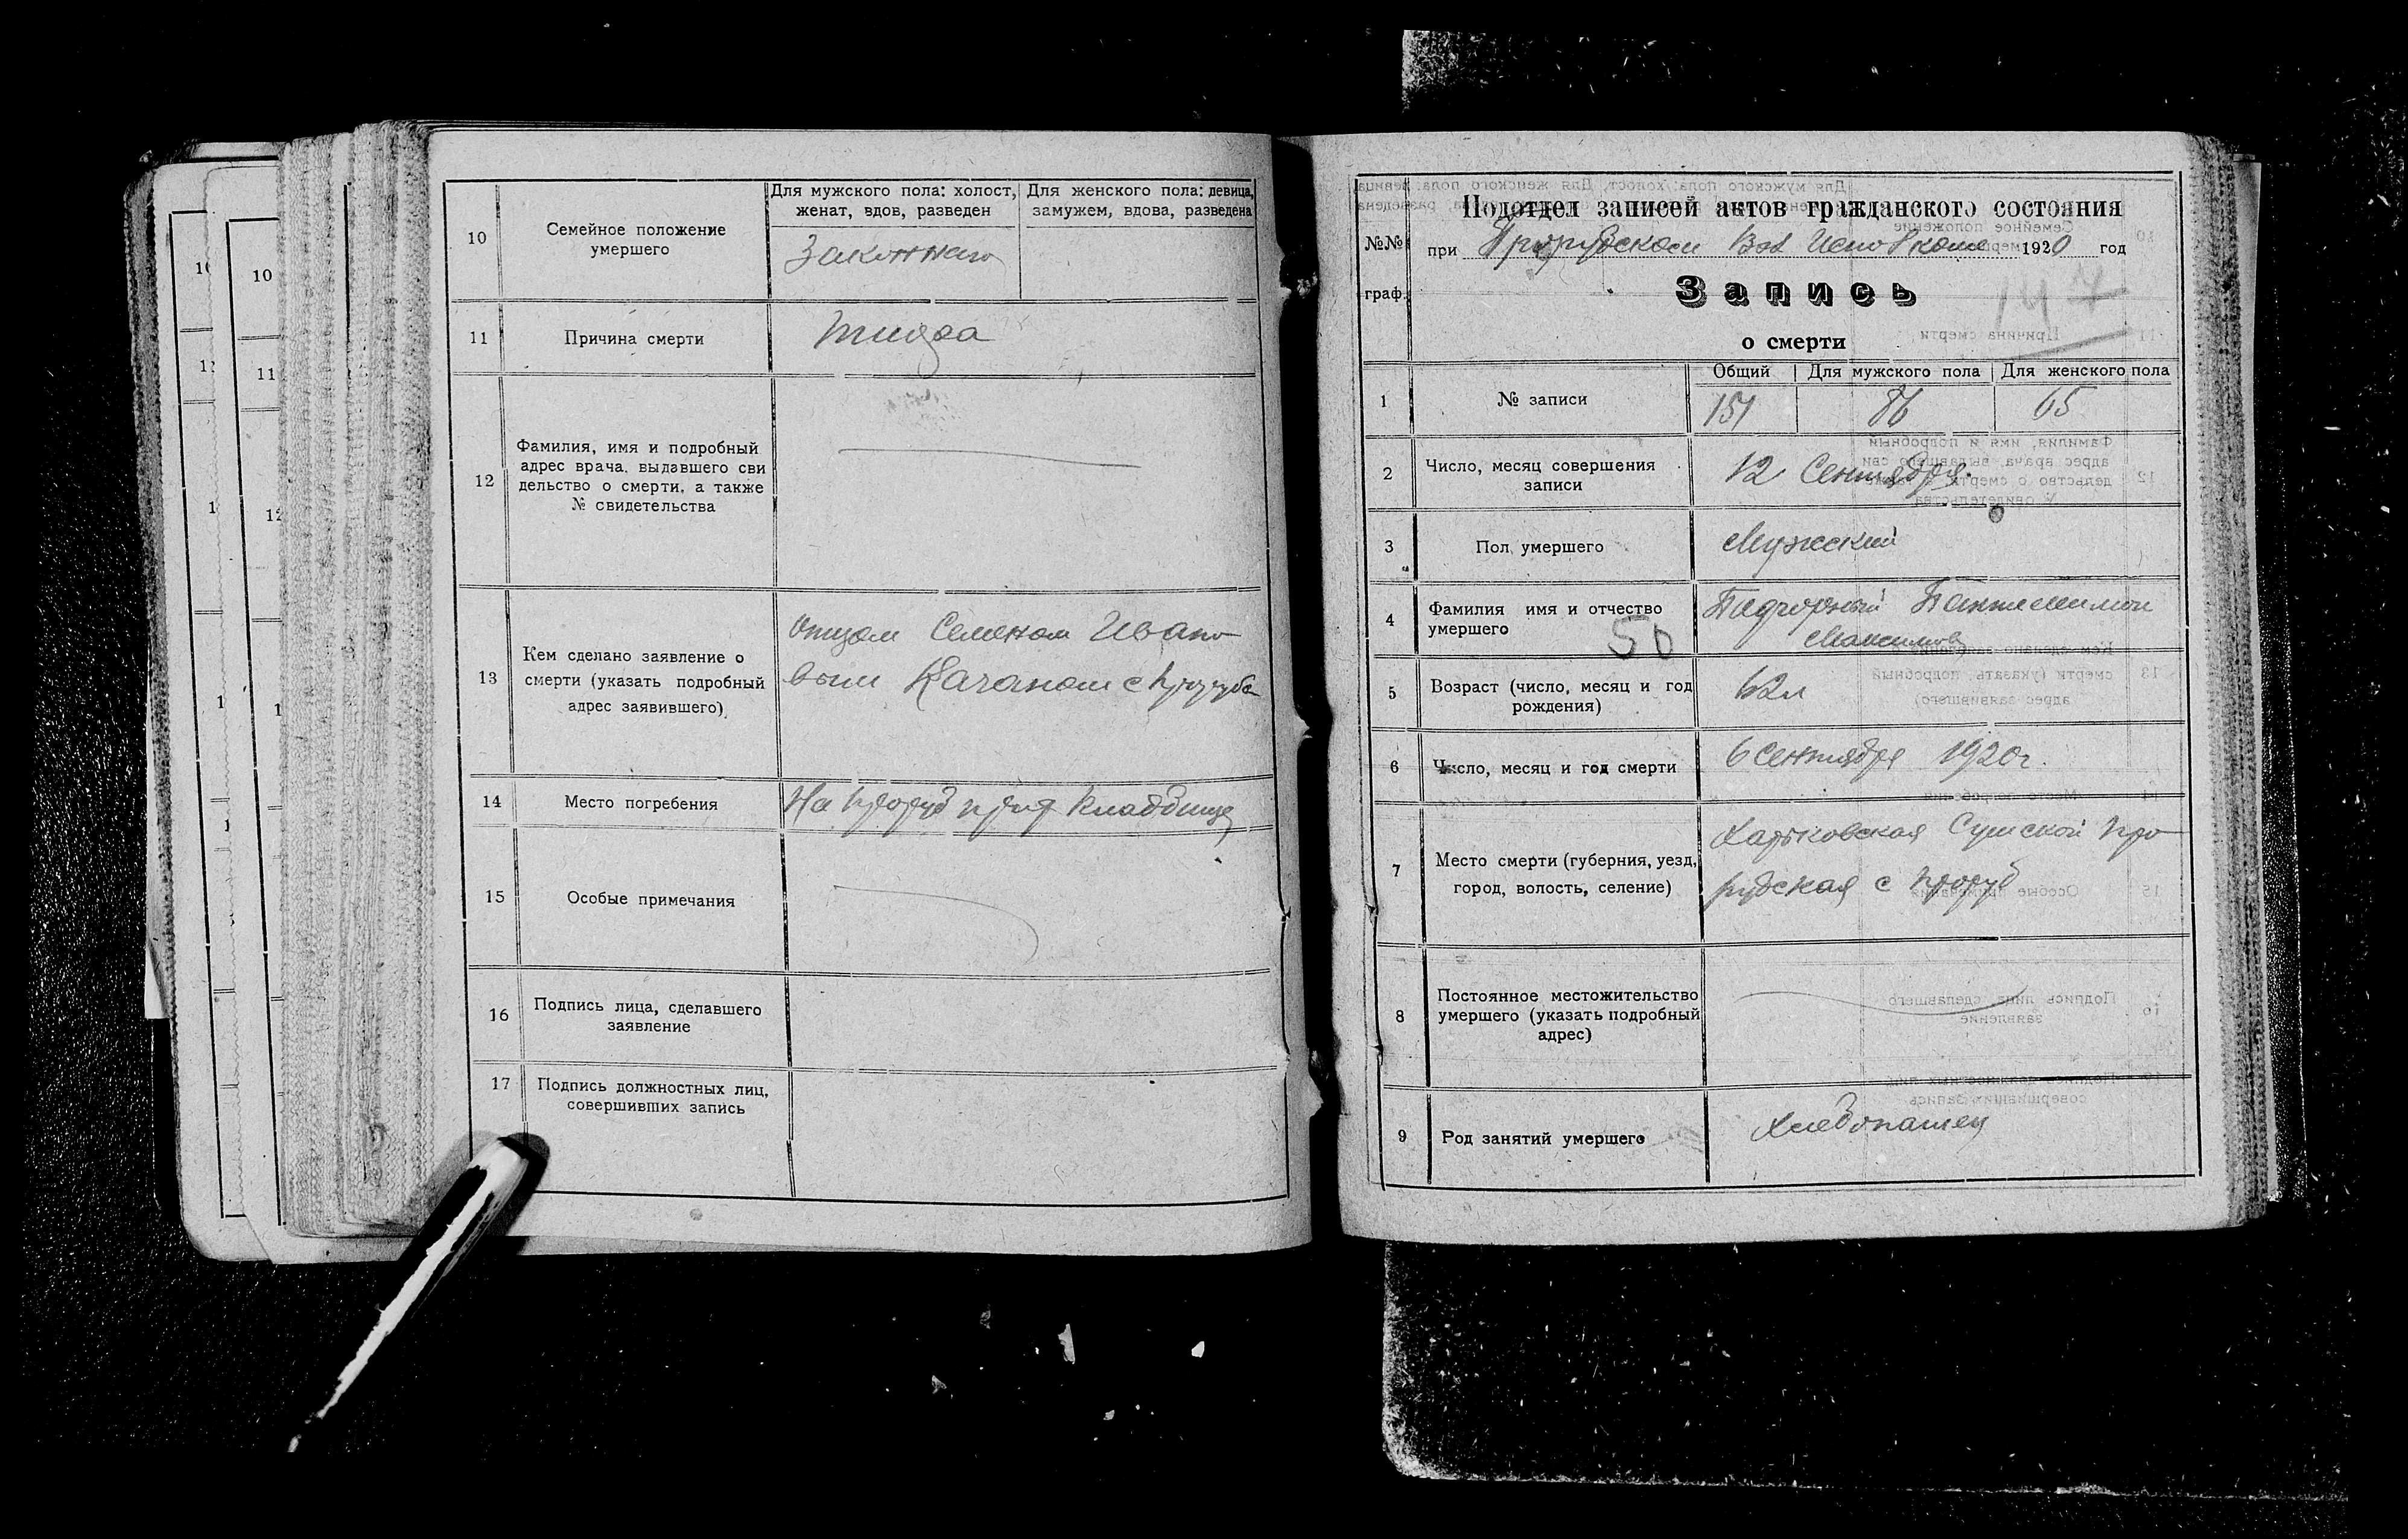 10
Семейное положение
умершего
Для мужского пола: холост,
женат, вдов, разведен
Для женского пола: девица,
замужем, вдова, разведена
Законнаго
11
Причина смерти
12
Фамилия, имя и подробный
адрес врача, выдавшего сви
дельство о смерти, а также
№ свидетельства
13
Кем сделано заявление о
смерти (указать подробный
адрес заявившего)
Отцом Семеном Ивано
вым Качаном с
14
Место погребения
На кладбище
15
Особые примечания
16
Подпись лица, сделавшего
заявление
17
Подпись должностных лиц,
совершивших запись
10
11
12
Подотдел записей актов гражданского состояния
№№
граф.
при Прорубском Вол Исполкоме 1920 год
Запись
о смерти
147
1
№ записи
Общий
Для мужского пола
Для женского пола
151
86
65
2
Число, месяц совершения
записи
12 Сентября
3
Пол умершего
Мужеский
4
Фамилия имя и отчество
умершего
50
Подгорный Пантелимон
Максимов
5
Возраст (число, месяц и год
рождения)
62 л
6
Число, месяц и год смерти
6 Сентября 1920 г.
7
Место смерти (губерния, уезд,
город, волость, селение)
Харьковская Сумской Про
рубская с Проруб
8
Постоянное местожительство
умершего (указать подробный
адрес)
9
Род занятий умершего
Хлебопашец